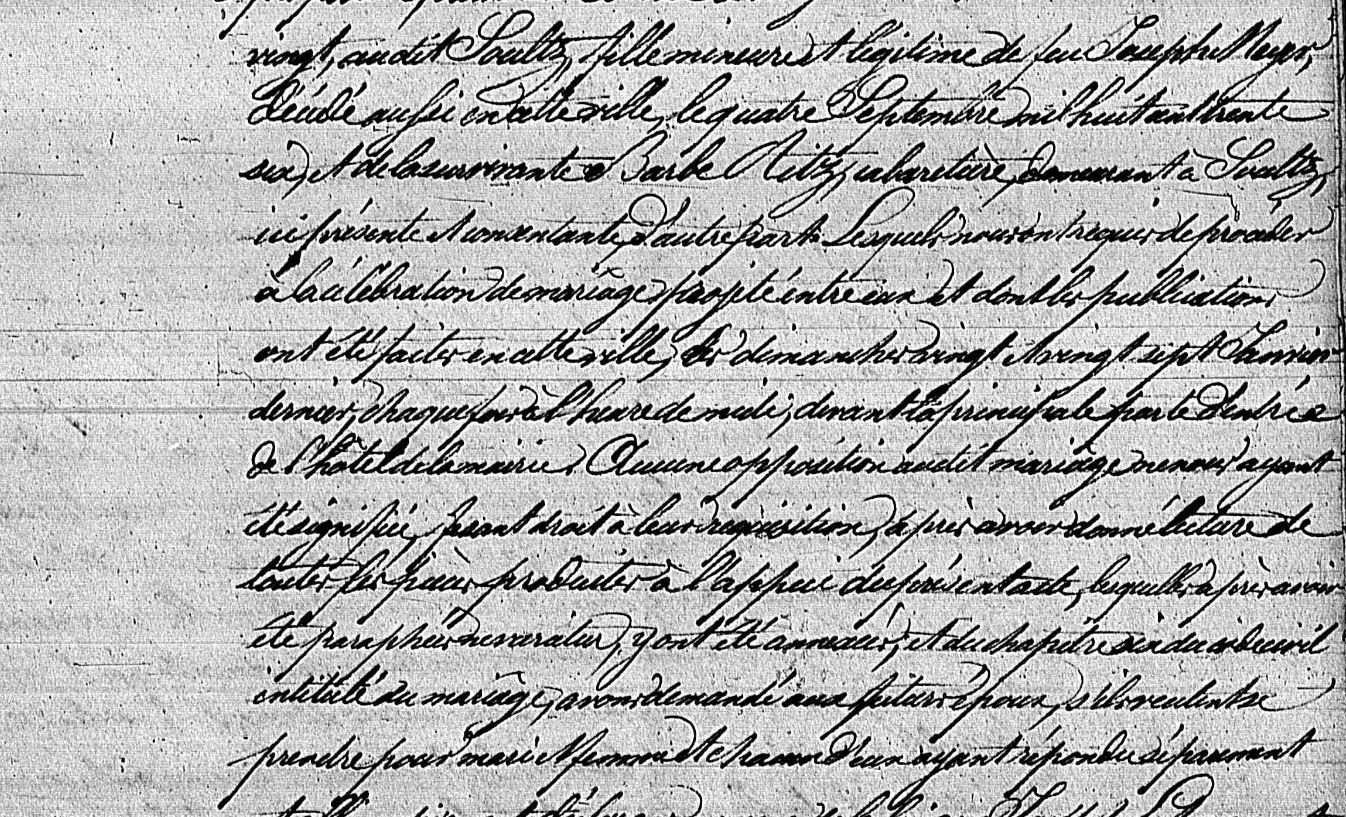 vingt, audit Soultz, fille mineure et légitime de feu Joseph Meyer,
décédé aussi en cette ville, le quatre Septembre mil huit cent trente
six, et de la survivante Barbe Ritz, cabaretière, demeurant à Soultz,
ici présente et consentante, d'autre part. Lesquels nous ont requis de procéder
à la célébration de mariâge projeté entre eux et dont les publications
ont été faites en cette ville, les dimanches vingt et vingt sept Janvier
dernier, chaque fois à l'heure de midi, devant la principale porte d'entrée
de l'hôtel de la mairie. Aucune opposition audit mariâge ne nous ayant
été signifiée, fesant droit à leur réquisition, après avoir donné lecture de
toutes les pièces produites à l'appui du présent acte, lesquelles après avoir
été paraphées ne varietur, y ont été annexées, et du chapitre six du code civil
intitulé du mariâge, avons demandé aux futurs époux, s'ils veulent se
prendre pour mari et femme et chacun d'eux ayant répondu séparement